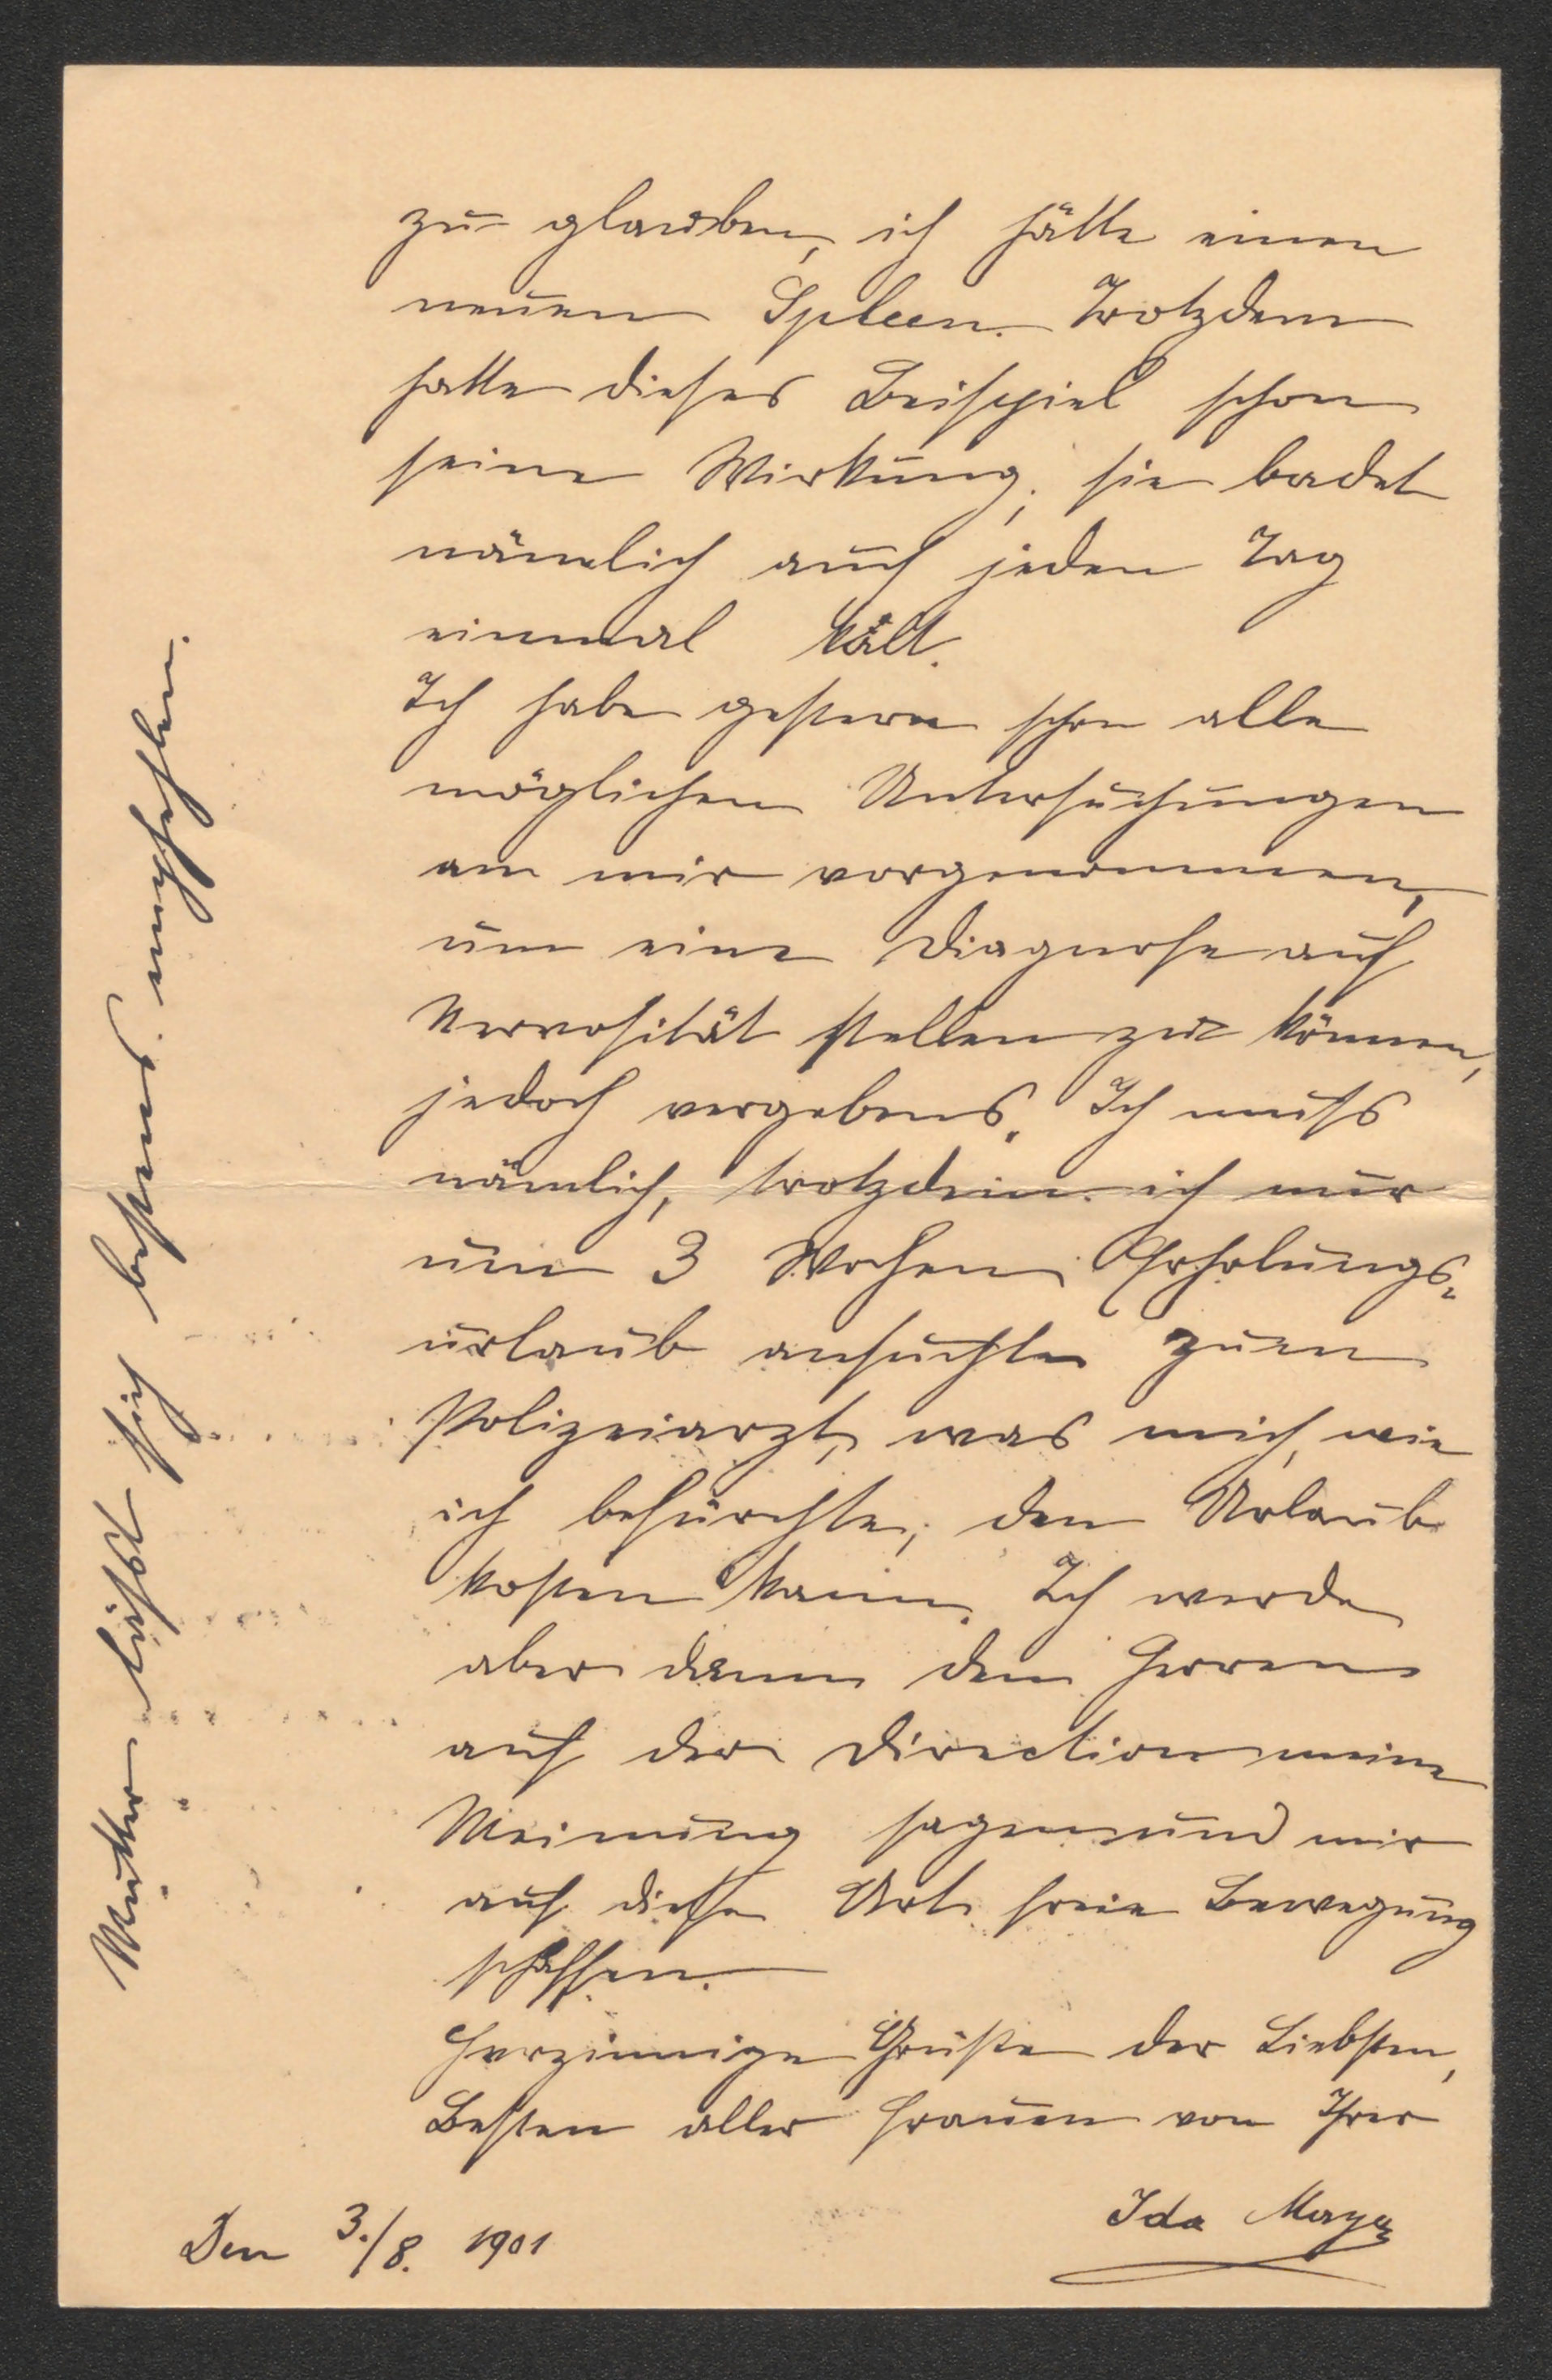 zu glauben, ich hätte einen
neuen Spleen. Trotzdem
hatte dieses Beispiel schon
seine Wirkung; sie badet
nämlich auch jeden Tag
einmal kalt.
Ich habe gestern schon alle
möglichen Untersuchungen
an mir vorgenommen,
um eine Diagnose auf
Nervosität stellen zu können,
jedoch vergebens. Ich muss
nämlich, trotzdem ich nur
um 3 Wochen Erholungs-
urlaub ansuchte zum
Polizeiarzt, was mich, wie
ich befürchte, den Urlaub
kosten kann. Ich werde
aber dann den Herren
auf der Direction meine
Meinung sagen und mir
auf diese Art freie Bewegung
schaffen.
Herzinnige Grüße der Liebsten,
Besten aller Frauen von Ihrer
Ida Maya
Den 3./8. 1901
Mutter läßt sich bestens empfehlen.